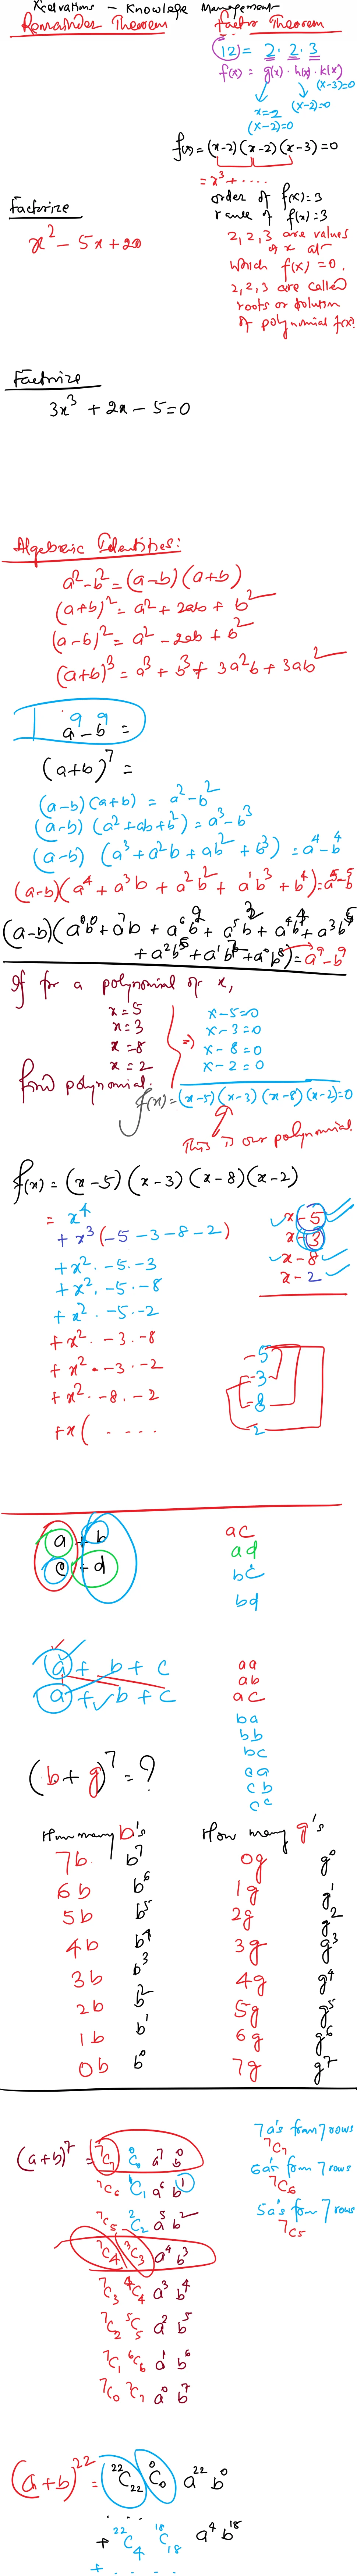 Derivations - Knowledge Management
Remainder Theorem
Factor Theorem
12 = 2 . 2 . 3
f(x) = g(x) . h(x) . k(x)
(x-3)=0
x=2 (x-2)=0
(x-2)=0
f(x) = (x-2)(x-2)(x-3) = 0
= x³ + ....
order of f(x) = 3
range of f(x) = 3
2, 2, 3 are values
of x at
which f(x) = 0.
2, 2, 3 are called
roots or solution
of polynomial f(x).
Factorize
x² - 5x + 20
Factorize
3x³ + 2x - 5 = 0
Algebraic Identities:
a² - b² = (a-b)(a+b)
(a+b)² = a² + 2ab + b²
(a-b)² = a² - 2ab + b²
(a+b)³ = a³ + b³ + 3a²b + 3ab²
a⁹ - b⁹ =
(a+b)⁷ =
(a-b)(a+b) = a² - b²
(a-b)(a² + ab + b²) = a³ - b³
(a-b)(a³ + a²b + ab² + b³) = a⁴ - b⁴
(a-b)(a⁴ + a³b + a²b² + a¹b³ + b⁴) = a⁵ - b⁵
(a-b)(a⁸b⁰ + a⁷b + a⁶b² + a⁵b³ + a⁴b⁴ + a³b⁵
+ a²b⁶ + a¹b⁷ + a⁰b⁸) = a⁹ - b⁹
If for a polynomial of x,
x = 5
x = 3
x = 8
x = 2
=>
x - 5 = 0
x - 3 = 0
x - 8 = 0
x - 2 = 0
find polynomial.
f(x) = (x-5)(x-3)(x-8)(x-2) = 0
This is our polynomial
f(x) = (x-5)(x-3)(x-8)(x-2)
= x⁴
+ x³(-5 -3 -8 -2)
+ x² . -5 . -3
+ x² . -5 . -8
+ x² . -5 . -2
+ x² . -3 . -8
+ x² . -3 . -2
+ x² . -8 . -2
+ x ( . . . .
x - 5
x - 3
x - 8
x - 2
-5
-3
-8
-2
a + b
c + d
ac
ad
bc
bd
a + b + c
a + b + c
aa
ab
ac
ba
bb
bc
ca
cb
cc
(b + g)⁷ = ?
How many b's
How many g's
7b b⁷ 0g g⁰
6b b⁶ 1g g¹
5b b⁵ 2g g²
4b b⁴ 3g g³
3b b³ 4g g⁴
2b b² 5g g⁵
1b b¹ 6g g⁶
0b b⁰ 7g g⁷
(a+b)⁷ = ⁷C₇ ⁰C₀ a⁷ b⁰
⁷C₆ ¹C₁ a⁶ b¹
⁷C₅ ²C₂ a⁵ b²
⁷C₄ ³C₃ a⁴ b³
⁷C₃ ⁴C₄ a³ b⁴
⁷C₂ ⁵C₅ a² b⁵
⁷C₁ ⁶C₆ a¹ b⁶
⁷C₀ ⁷C₇ a⁰ b⁷
7 a's from 7 rows
⁷C₇
6 a's from 7 rows
⁷C₆
5 a's from 7 rows
⁷C₅
(a+b)²² = ²²C₂₂ ⁰C₀ a²² b⁰
. . . .
+ ²²C₄ ¹⁸C₁₈ a⁴ b¹⁸
+ . . . .